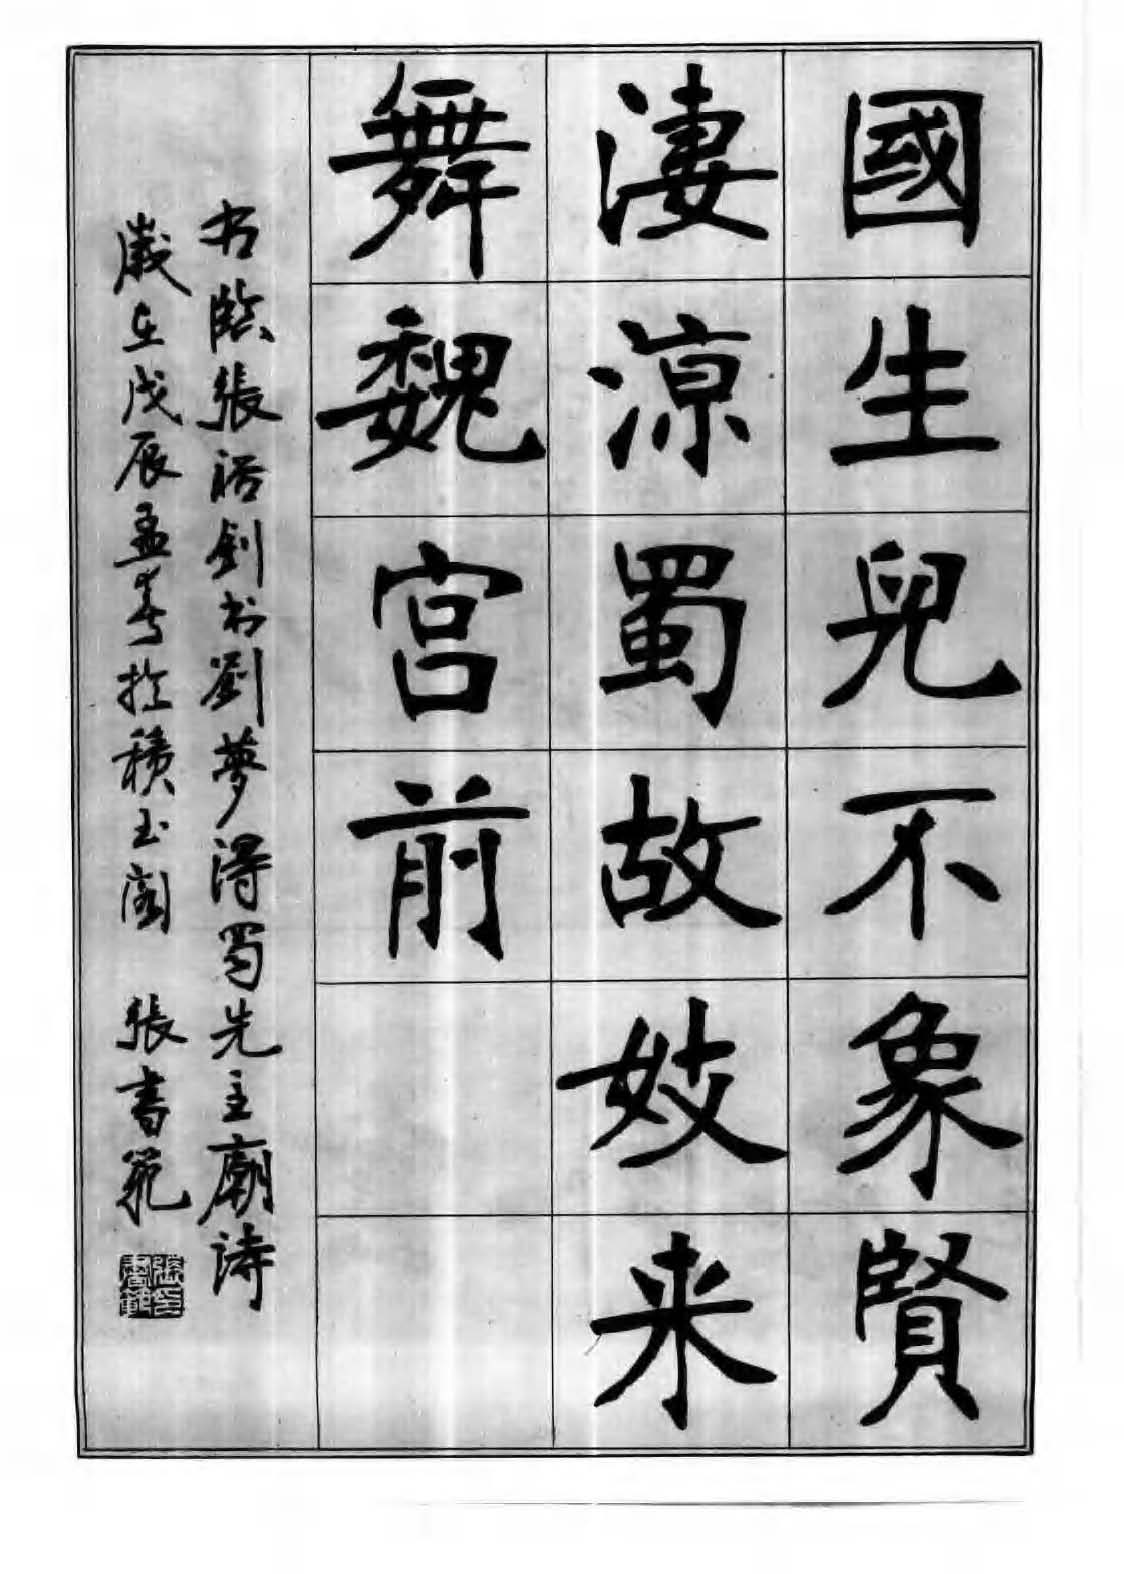 國生兒不象賢
淒涼蜀故妓来
舞魏宫前
书臨張裕釗书劉夢得蜀先主廟诗
歲在戊辰孟春於積玉閣 張書範
張書範印